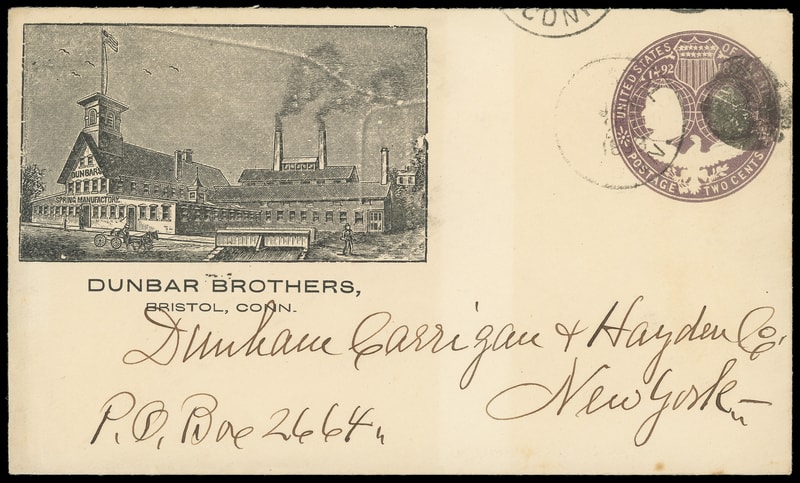 CONN
UNITED STATES OF AMERICA
1492
POSTAGE TWO CENTS
DUNBAR
SPRING MANUFACTORY.
DUNBAR BROTHERS,
BRISTOL, CONN.
Dunham Carrigan & Hayden Co,
New York
P.O. Box 2664